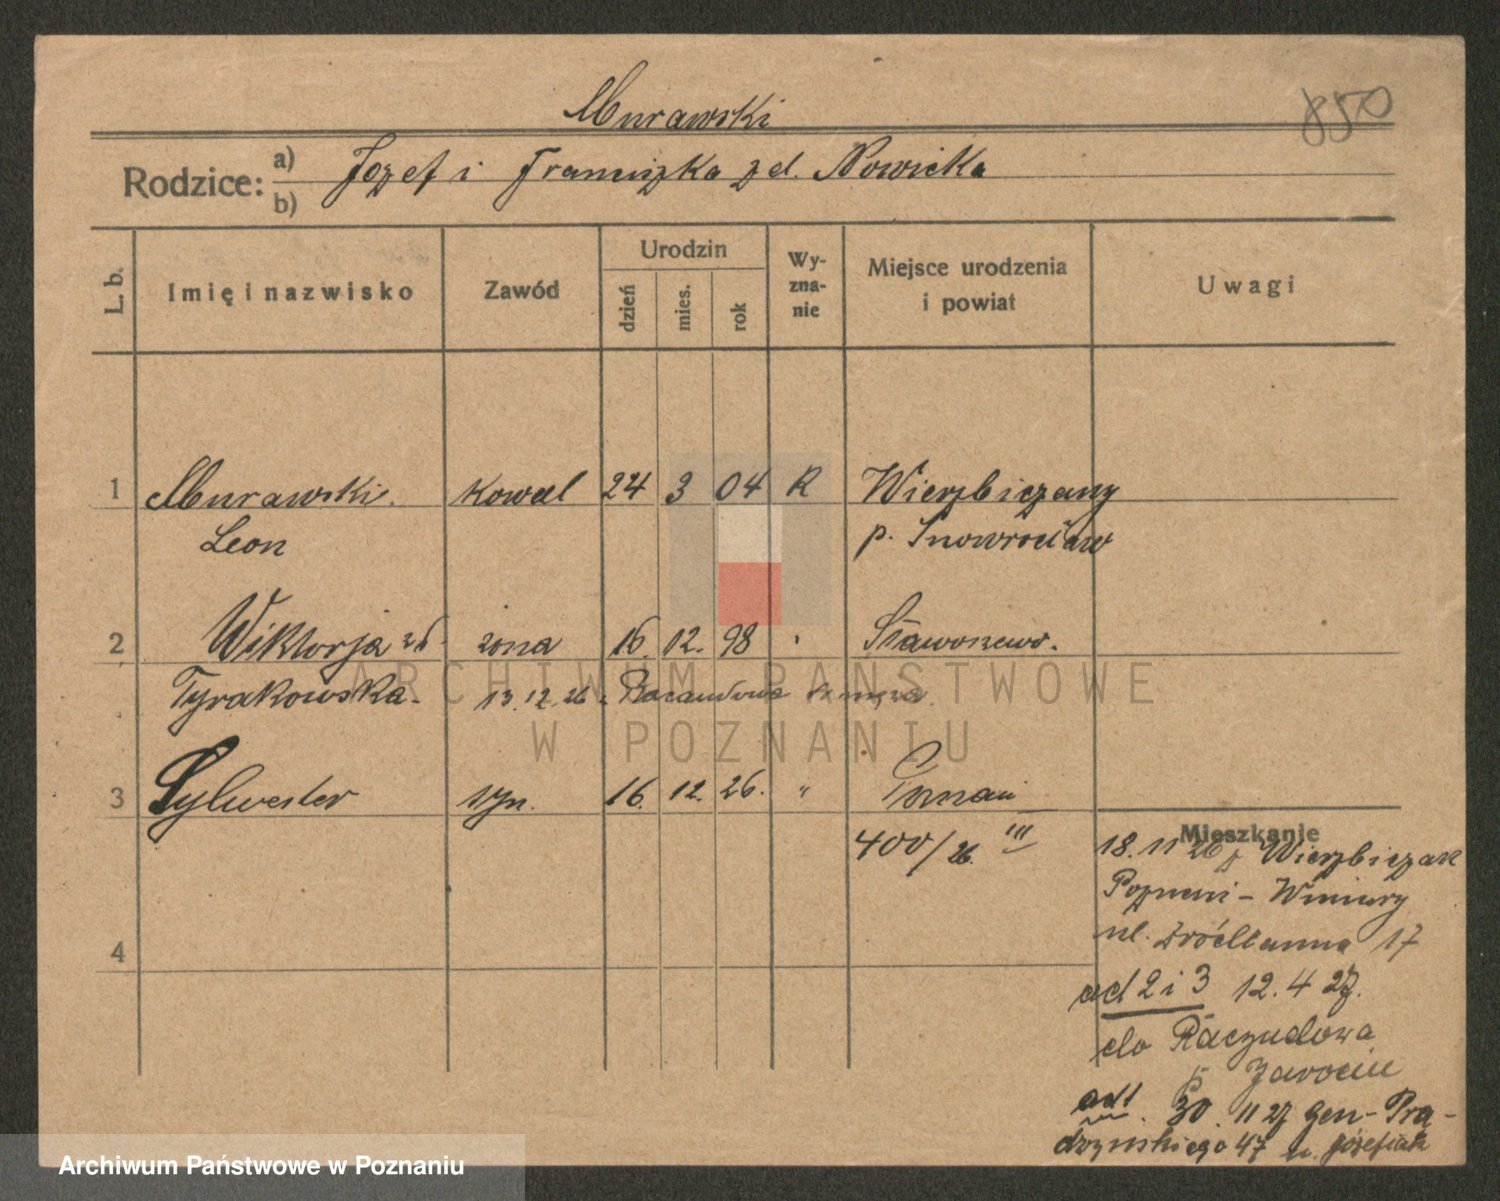 Murawski
850
Rodzice: a) Józef i Franciszka zd. Nowicka
b)
L. b. Imię i nazwisko Zawód Urodzin dzień mies. rok Wyznanie Miejsce urodzenia i powiat Uwagi
1 Murawski kowal 24 3 04 R Wierzbiczany
Leon p. Inowrocław
2 Wiktorja zd. żona 16. 12. 98 " Sławoszewo.
Tyrakowska. 13.12.26 z
3 Sylwester syn. 16. 12. 26. " Poznań
400/26. III
Mieszkanie
18. 11 26 Wierzbiczan
Poznań - Winiary
ul. 17
ad 2 i 3 12. 4 27.
do Raczndowa
p Jarocin
4
ad 1. 30. 11 27 gen - Prą-
dzyńskiego 47 u. Józefiak
ARCHIWUM PAŃSTWOWE
W POZNANIU
Archiwum Państwowe w Poznaniu